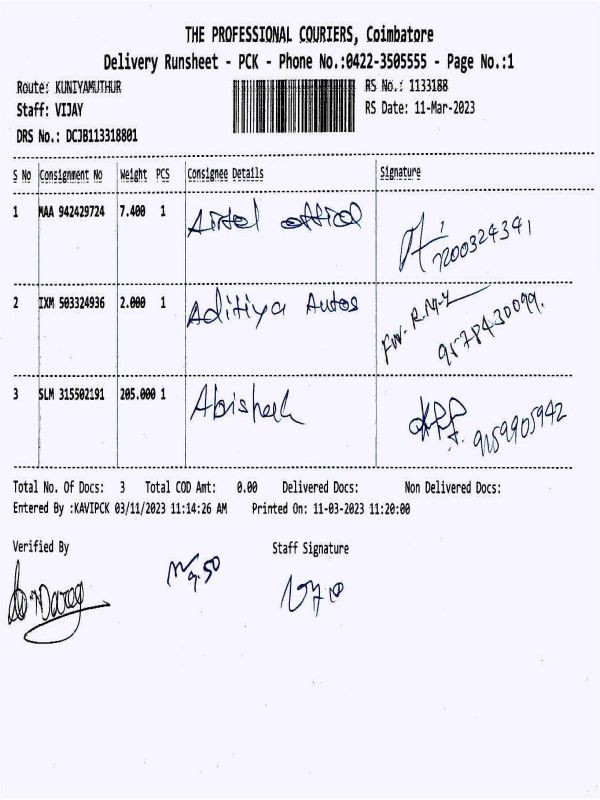 THE PROFESSIONAL COURIERS, Coimbatore
Delivery Runsheet - PCK - Phone No.:0422-3505555 - Page No.:1
Route: KUNIYAMUTHUR RS No.: 1133188
Staff: VIJAY RS Date: 11-Mar-2023
DRS No.: DCJB113318801
S No Consignment No Weight PCS Consignee Details Signature
1 MAA 942429724 7.400 1 Airtel office 7200324341
2 IXM 503324936 2.000 1 Aditiya Autos For. R.M.Y
9578430099.
3 SLM 315502191 205.000 1 Abishek 9159905942
Total No. Of Docs: 3 Total COD Amt: 0.00 Delivered Docs: Non Delivered Docs:
Entered By :KAVIPCK 03/11/2023 11:14:26 AM Printed On: 11-03-2023 11:20:00
Verified By Staff Signature
9.50